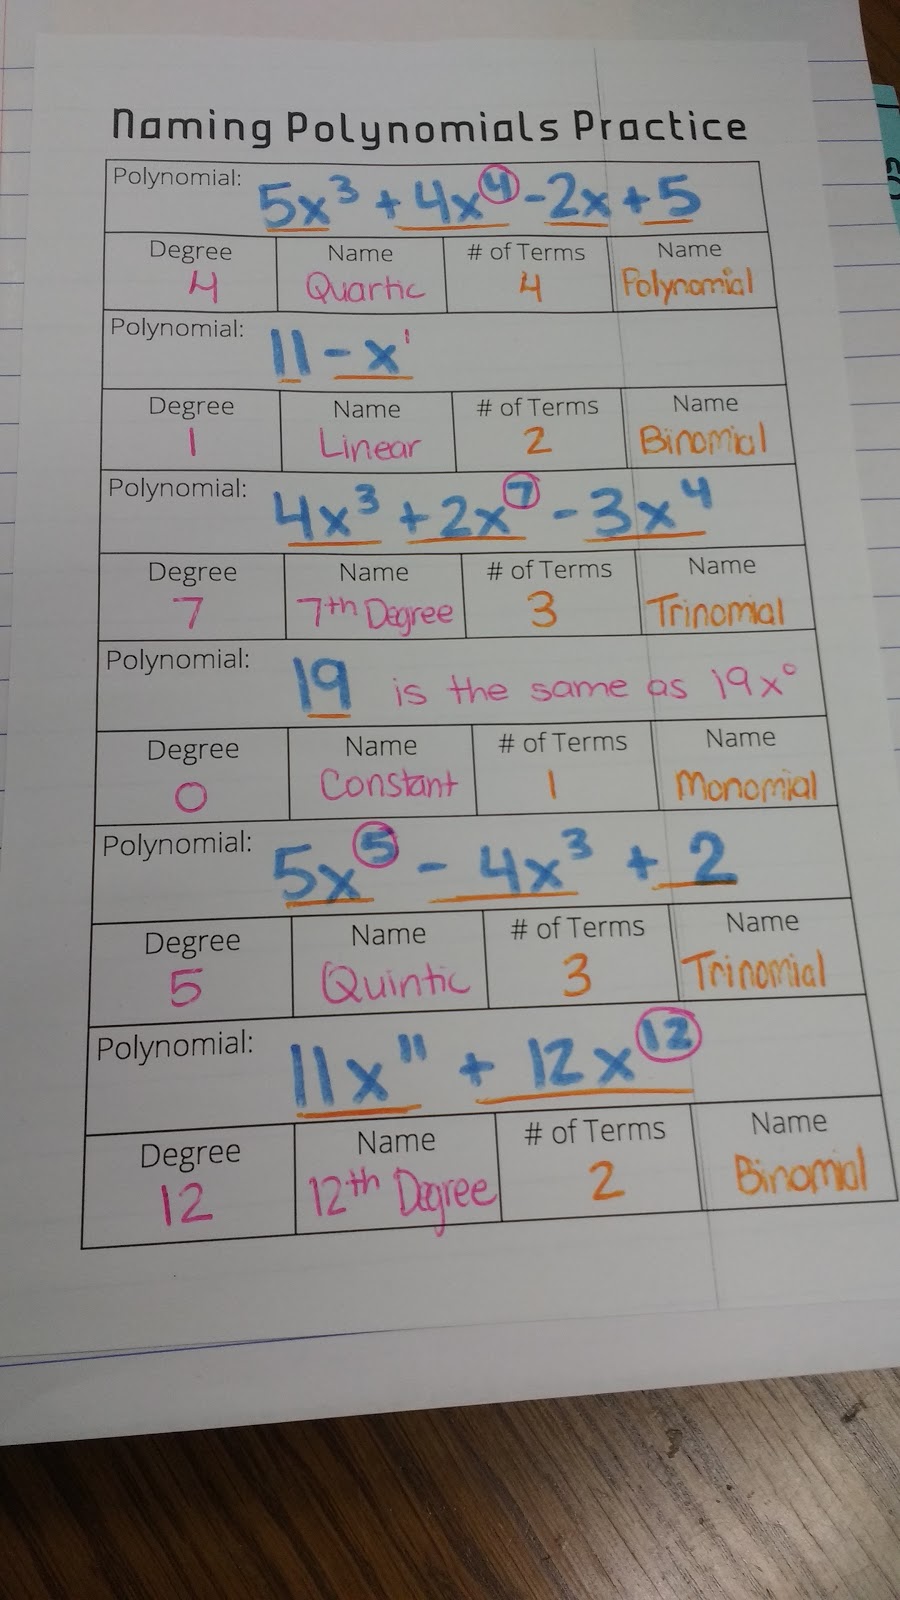 Naming Polynomials Practice
Polynomial: 5x³ + 4x⁴ - 2x + 5
Degree Name # of Terms Name
4 Quartic 4 Polynomial
Polynomial: 11 - x¹
Degree Name # of Terms Name
1 Linear 2 Binomial
Polynomial: 4x³ + 2x⁷ - 3x⁴
Degree Name # of Terms Name
7 7th Degree 3 Trinomial
Polynomial: 19 is the same as 19x⁰
Degree Name # of Terms Name
0 Constant 1 Monomial
Polynomial: 5x⁵ - 4x³ + 2
Degree Name # of Terms Name
5 Quintic 3 Trinomial
Polynomial: 11x¹¹ + 12x¹²
Degree Name # of Terms Name
12 12th Degree 2 Binomial